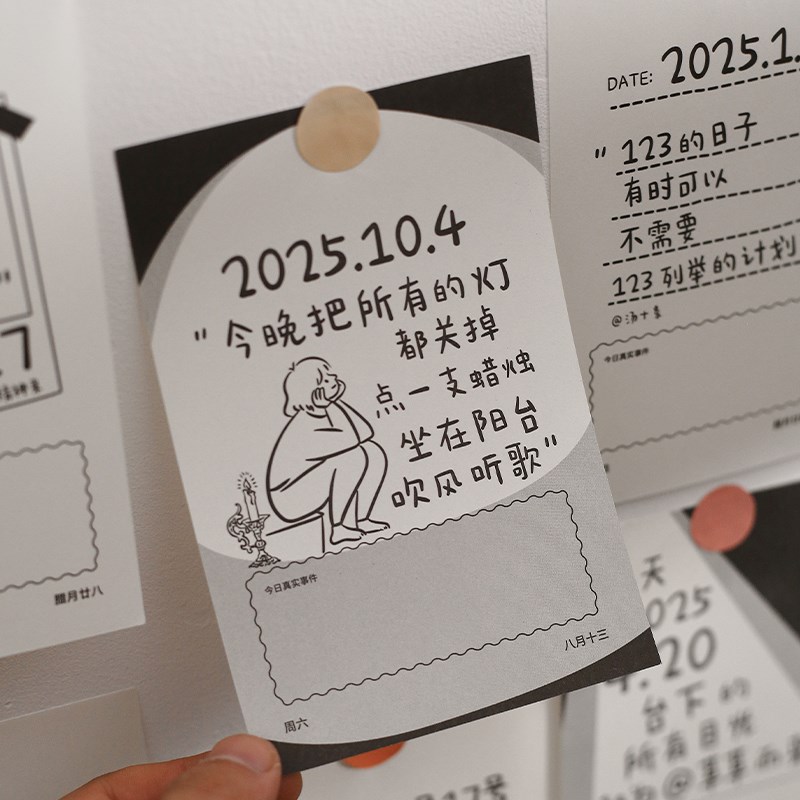 2025.10.4
"今晚把所有的灯
都关掉
点一支蜡烛
坐在阳台
吹风听歌"
今日真实事件
周六
八月十三
DATE: 2025.1.
"123的日子
有时可以
不需要
123列举的计划
@汤十素
今日真实事件
7
腊月廿八
天
2025
4.20
台下的
所有目光
17号